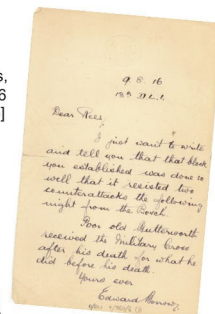 s,
6
]
9. 8. 16
13th D.L.I.
Dear Rees,
I just want to write
and tell you that that block
you established was done so
well that it resisted two
counterattacks the following
night from the Boch.
Poor old Butterworth
received the Military Cross
after his death for what he
did before his death.
Yours ever
Edward